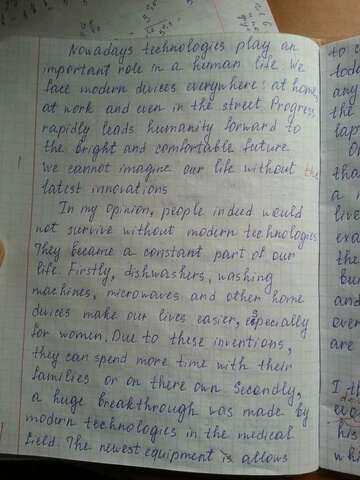 Nowadays technologies play an
important role in a human life. We
face modern devices everywhere: at home,
at work and even in the street. Progress
rapidly leads humanity forward to
the bright and comfortable future.
We cannot imagine our life without the
latest innovations.
In my opinion, people indeed would
not survive without modern technologies.
They became a constant part of our
life. Firstly, dishwashers, washing
machines, microwaves and other home
devices make our lives easier, especially
for women. Due to these inventions,
they can spend more time with their
families or on there own. Secondly,
a huge breakthrough was made by
modern technologies in the medical
field. The newest equipment is allows